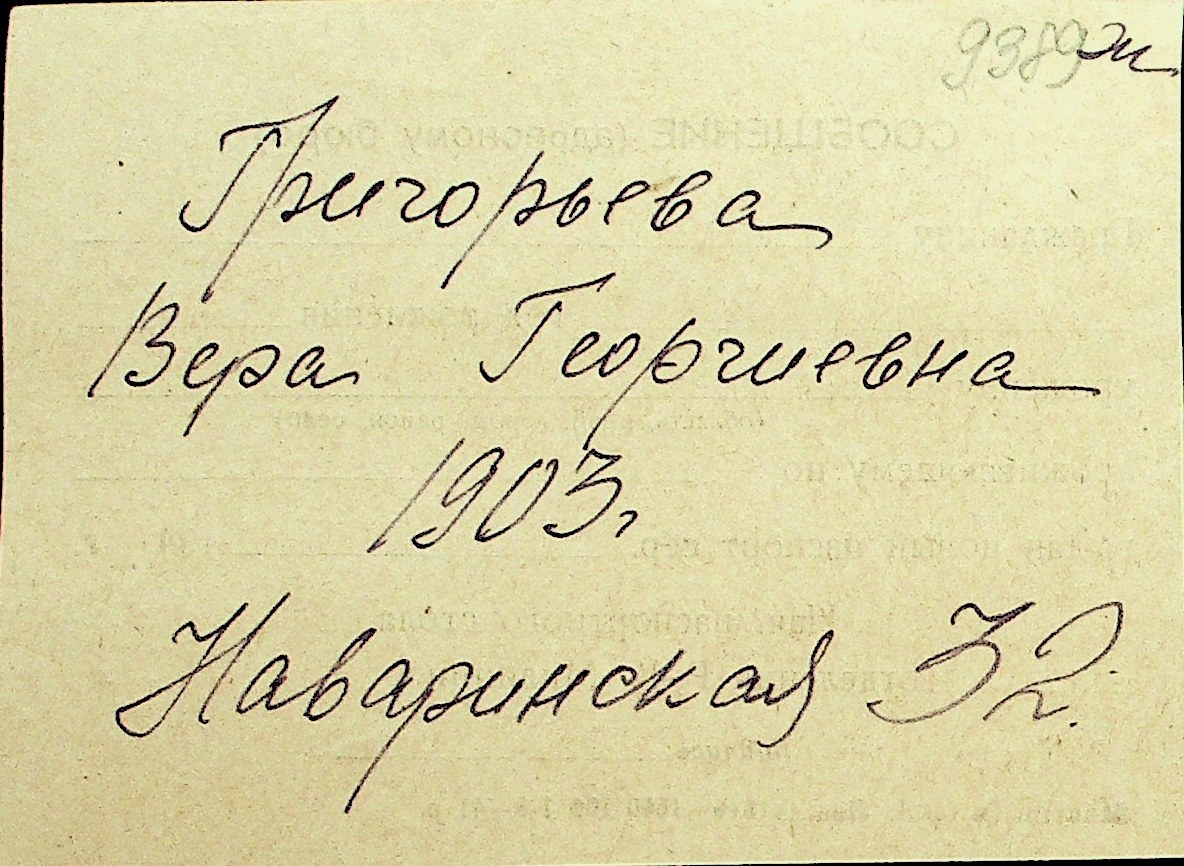 9389 ж
Григорьева
Вера Георгиевна
1903г
Наваринская 32.